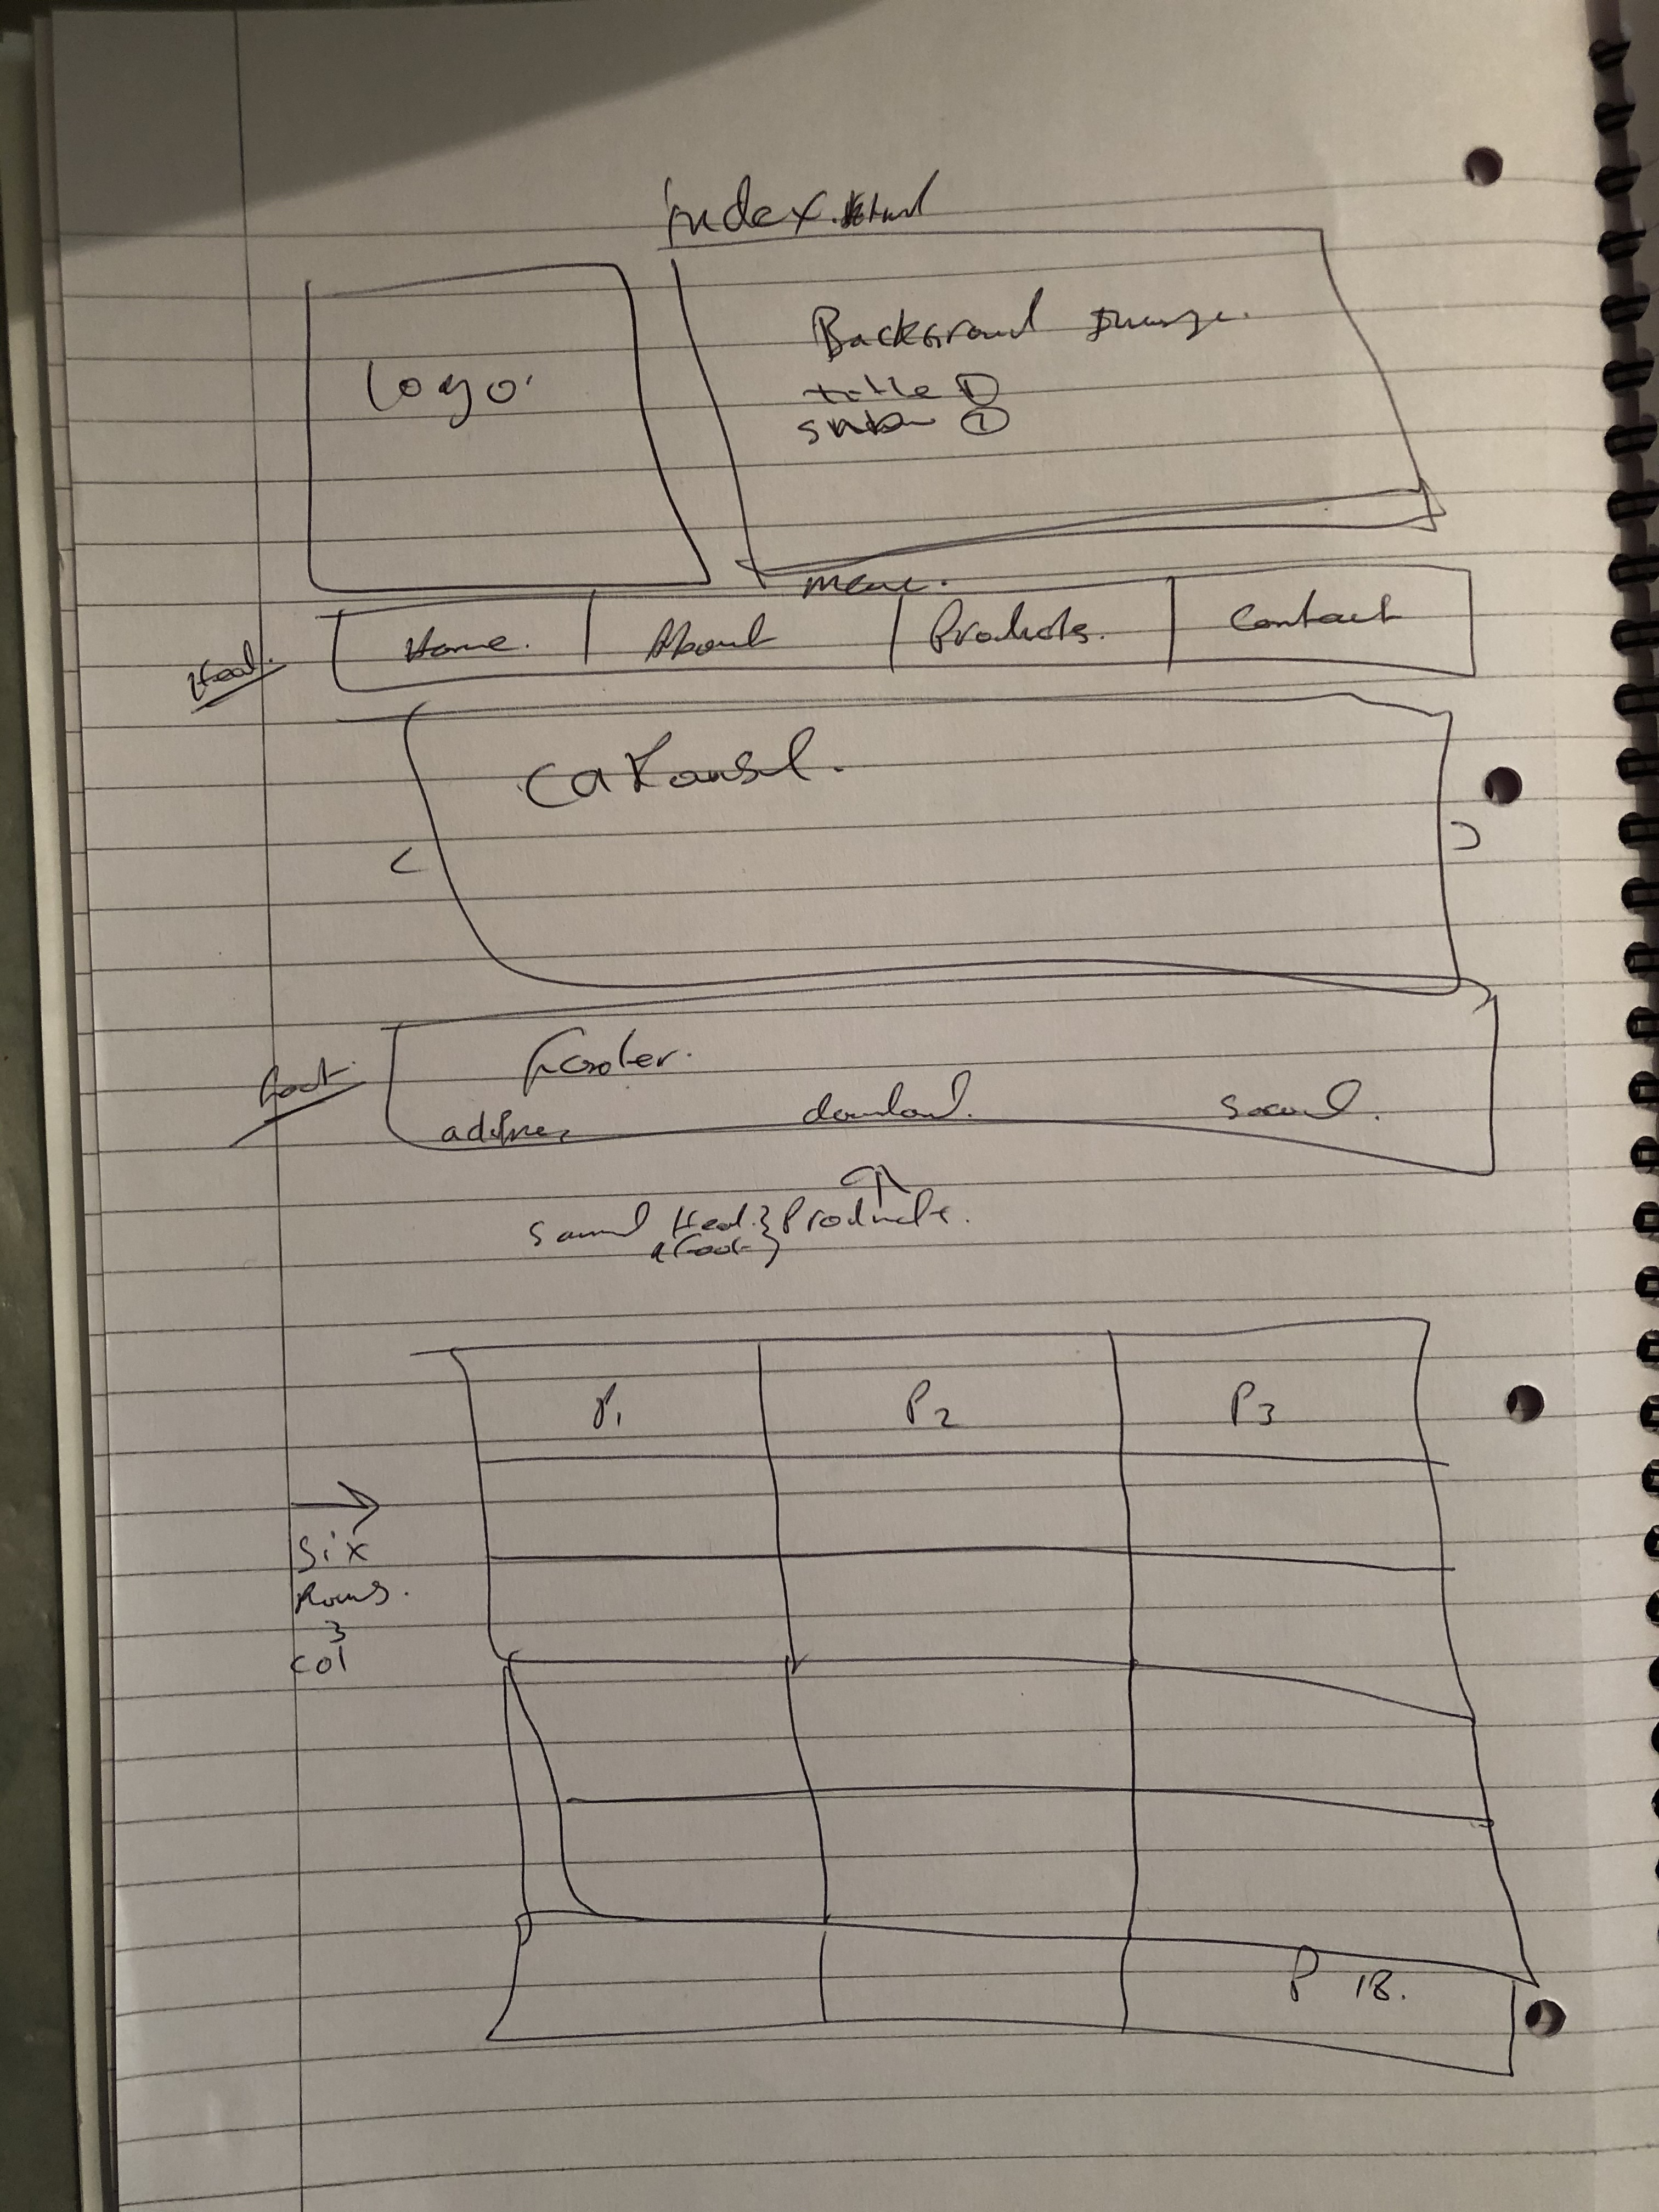 index.html
logo.
Background Image.
title ①
menu.
Home. About Products. Contact
Head.
Carousel.
< >
Footer.
Foot
address download. social.
Head } Products.
& Foot }
P1 P2 P3
→
Six
Rows.
3
col
P 18.